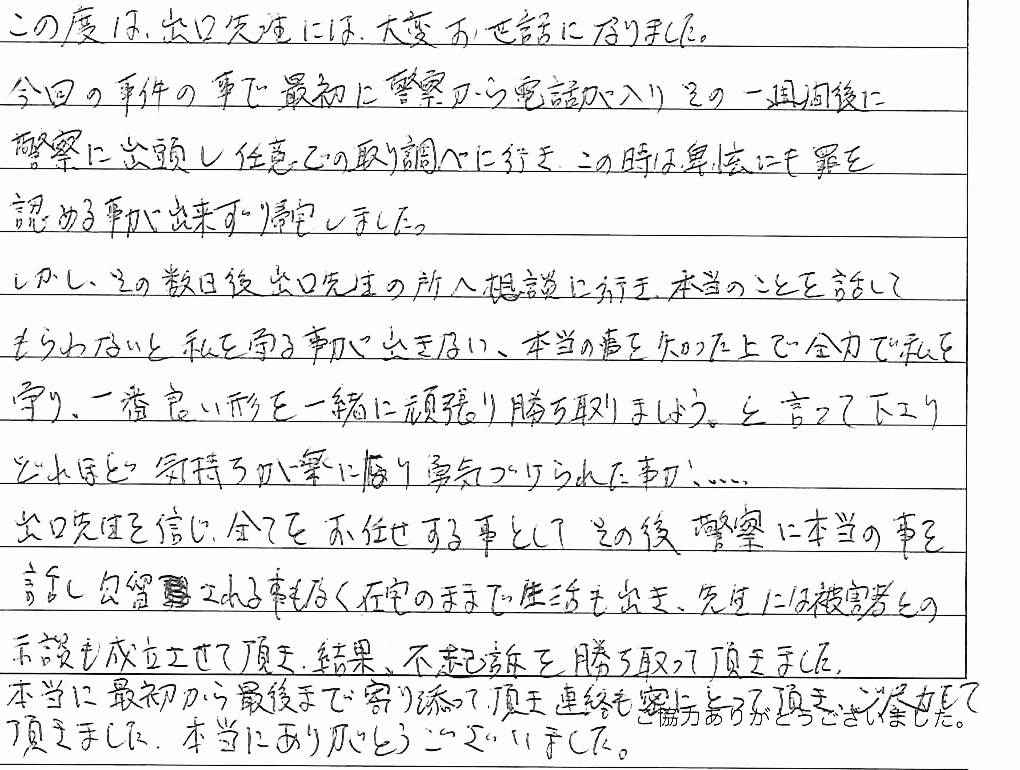 この度は、出口先生には、大変お世話になりました。
今回の事件の事で最初に警察から電話が入りその一週間後に
警察に出頭し任意での取り調べに行き、この時は卑怯にも罪を
認める事が出来ずり帰宅しました。
しかし、その数日後出口先生の所へ相談に行き、本当のことを話して
もらわないと私を守る事が出きない、本当の事を知った上で全力で私を
守り、一番良い形を一緒に頑張り勝ち取りましょう。と言って下エり
どれほど気持ちが楽になり勇気づけられた事か、.....
出口先生を信じ、全てをお任せする事としてその後警察に本当の事を
話し勾留される事もなく在宅のままで生活も出き、先生には被害者との
示談も成立させて頂き、結果、不起訴を勝ち取って頂きました。
本当に最初から最後まで寄り添って頂き連絡も密にとって頂き、ご尽力して
ご協力ありがとうございました。
頂きました。本当にありがとうございました。